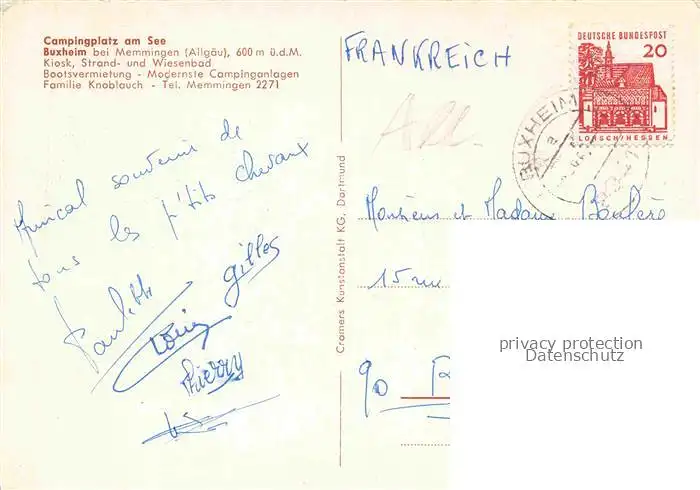 Campingplatz am See
Buxheim bei Memmingen (Allgäu), 600 m ü.d.M.
Kiosk, Strand- und Wiesenbad
Bootsvermietung - Modernste Campinganlagen
Familie Knoblauch - Tel. Memmingen 2271
Amical souvenir de
tous les p'tits chevaux
Paulette
Gilles
Thierry
Cramers Kunstanstalt KG, Dortmund
FRANKREICH
All.
DEUTSCHE BUNDESPOST
20
LORSCH/HESSEN
BUXHEIM
Monsieur et Madame
15 rue
90
privacy protection
Datenschutz